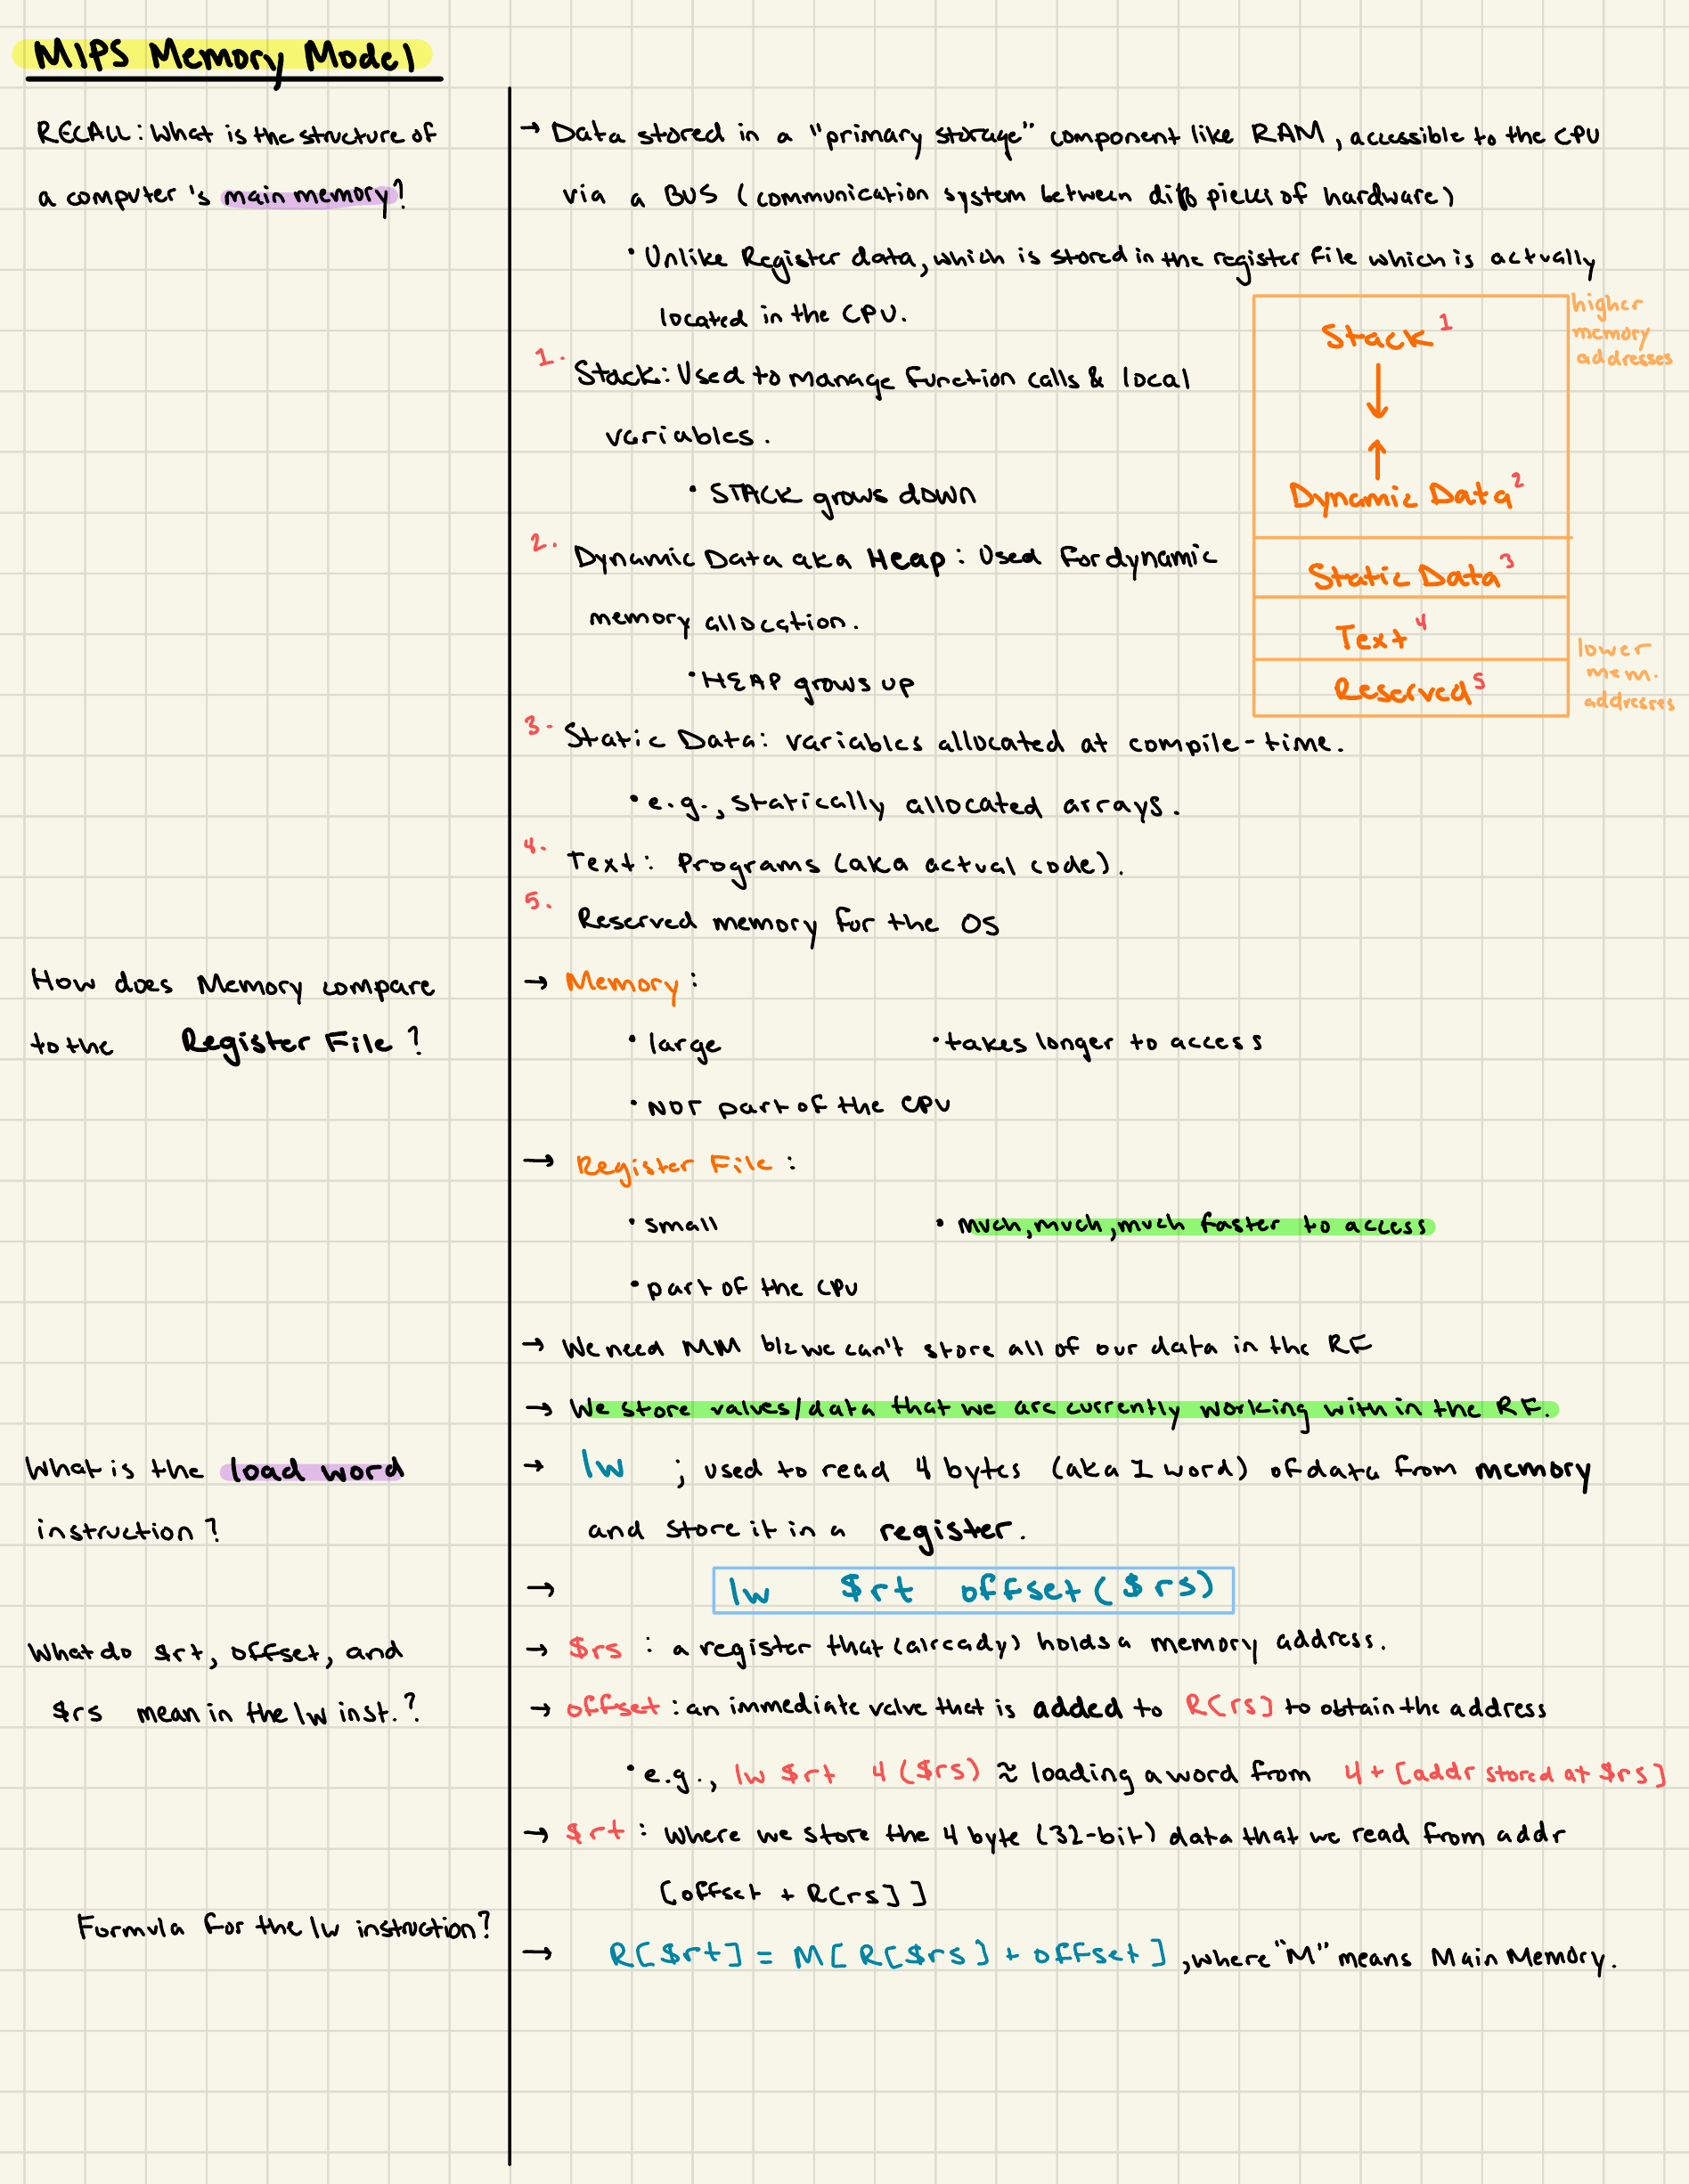 MIPS Memory Model
RECALL: What is the structure of
a computer's main memory?
→ Data stored in a "primary storage" component like RAM, accessible to the CPU
via a BUS (communication system between diff pieces of hardware)
• Unlike Register data, which is stored in the register file which is actually
located in the CPU.
1. Stack: Used to manage function calls & local
variables.
• STACK grows down
2. Dynamic Data aka Heap: Used for dynamic
memory allocation.
• HEAP grows up
3. Static Data: variables allocated at compile-time.
• e.g., statically allocated arrays.
4. Text: Programs (aka actual code).
5. Reserved memory for the OS
higher
memory
addresses
Stack 1
↓
↑
Dynamic Data 2
Static Data 3
Text 4
Reserved 5
lower
mem.
addresses
How does Memory compare
to the Register File?
→ Memory:
• large • takes longer to access
• NOT part of the CPU
→ Register File:
• small • much, much, much faster to access
• part of the CPU
→ We need MM b/c we can't store all of our data in the RF
→ We store values/data that we are currently working with in the RF.
What is the load word
instruction?
→ lw ; used to read 4 bytes (aka 1 word) of data from memory
and store it in a register.
→ lw $rt offset($rs)
What do $rt, offset, and
$rs mean in the lw inst.?
→ $rs : a register that (already) holds a memory address.
→ offset : an immediate value that is added to R[rs] to obtain the address
• e.g., lw $rt 4($rs) ≈ loading a word from 4 + [addr stored at $rs]
→ $rt : Where we store the 4 byte (32-bit) data that we read from addr
[offset + R[rs]]
Formula for the lw instruction?
→ R[$rt] = M[R[$rs] + offset], where "M" means Main Memory.